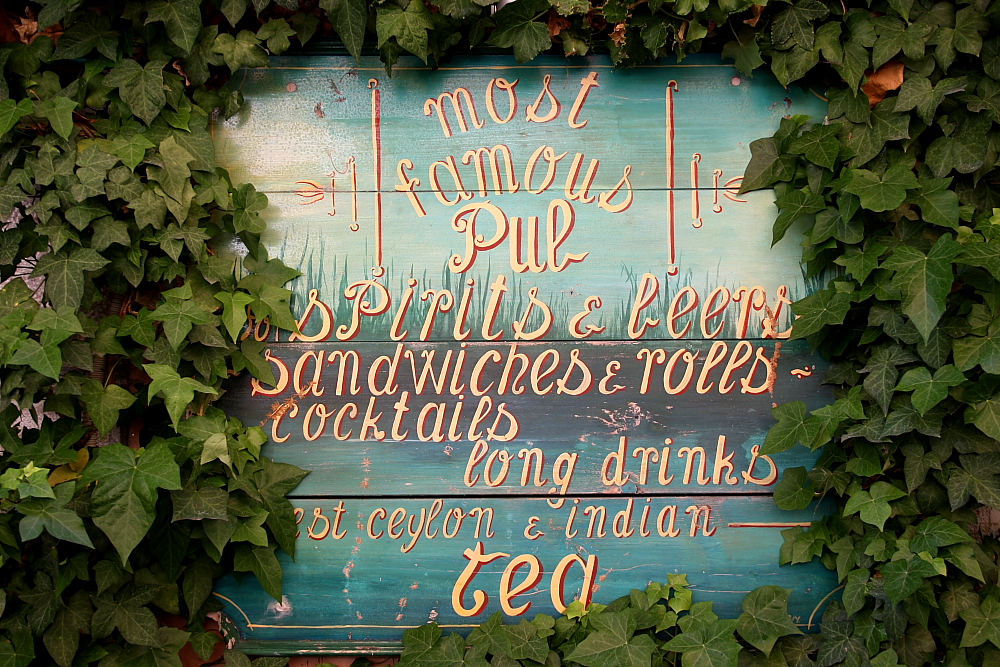 most
famous
Pub
spirits & beers
sandwiches & rolls
cocktails
long drinks
est ceylon & indian
tea